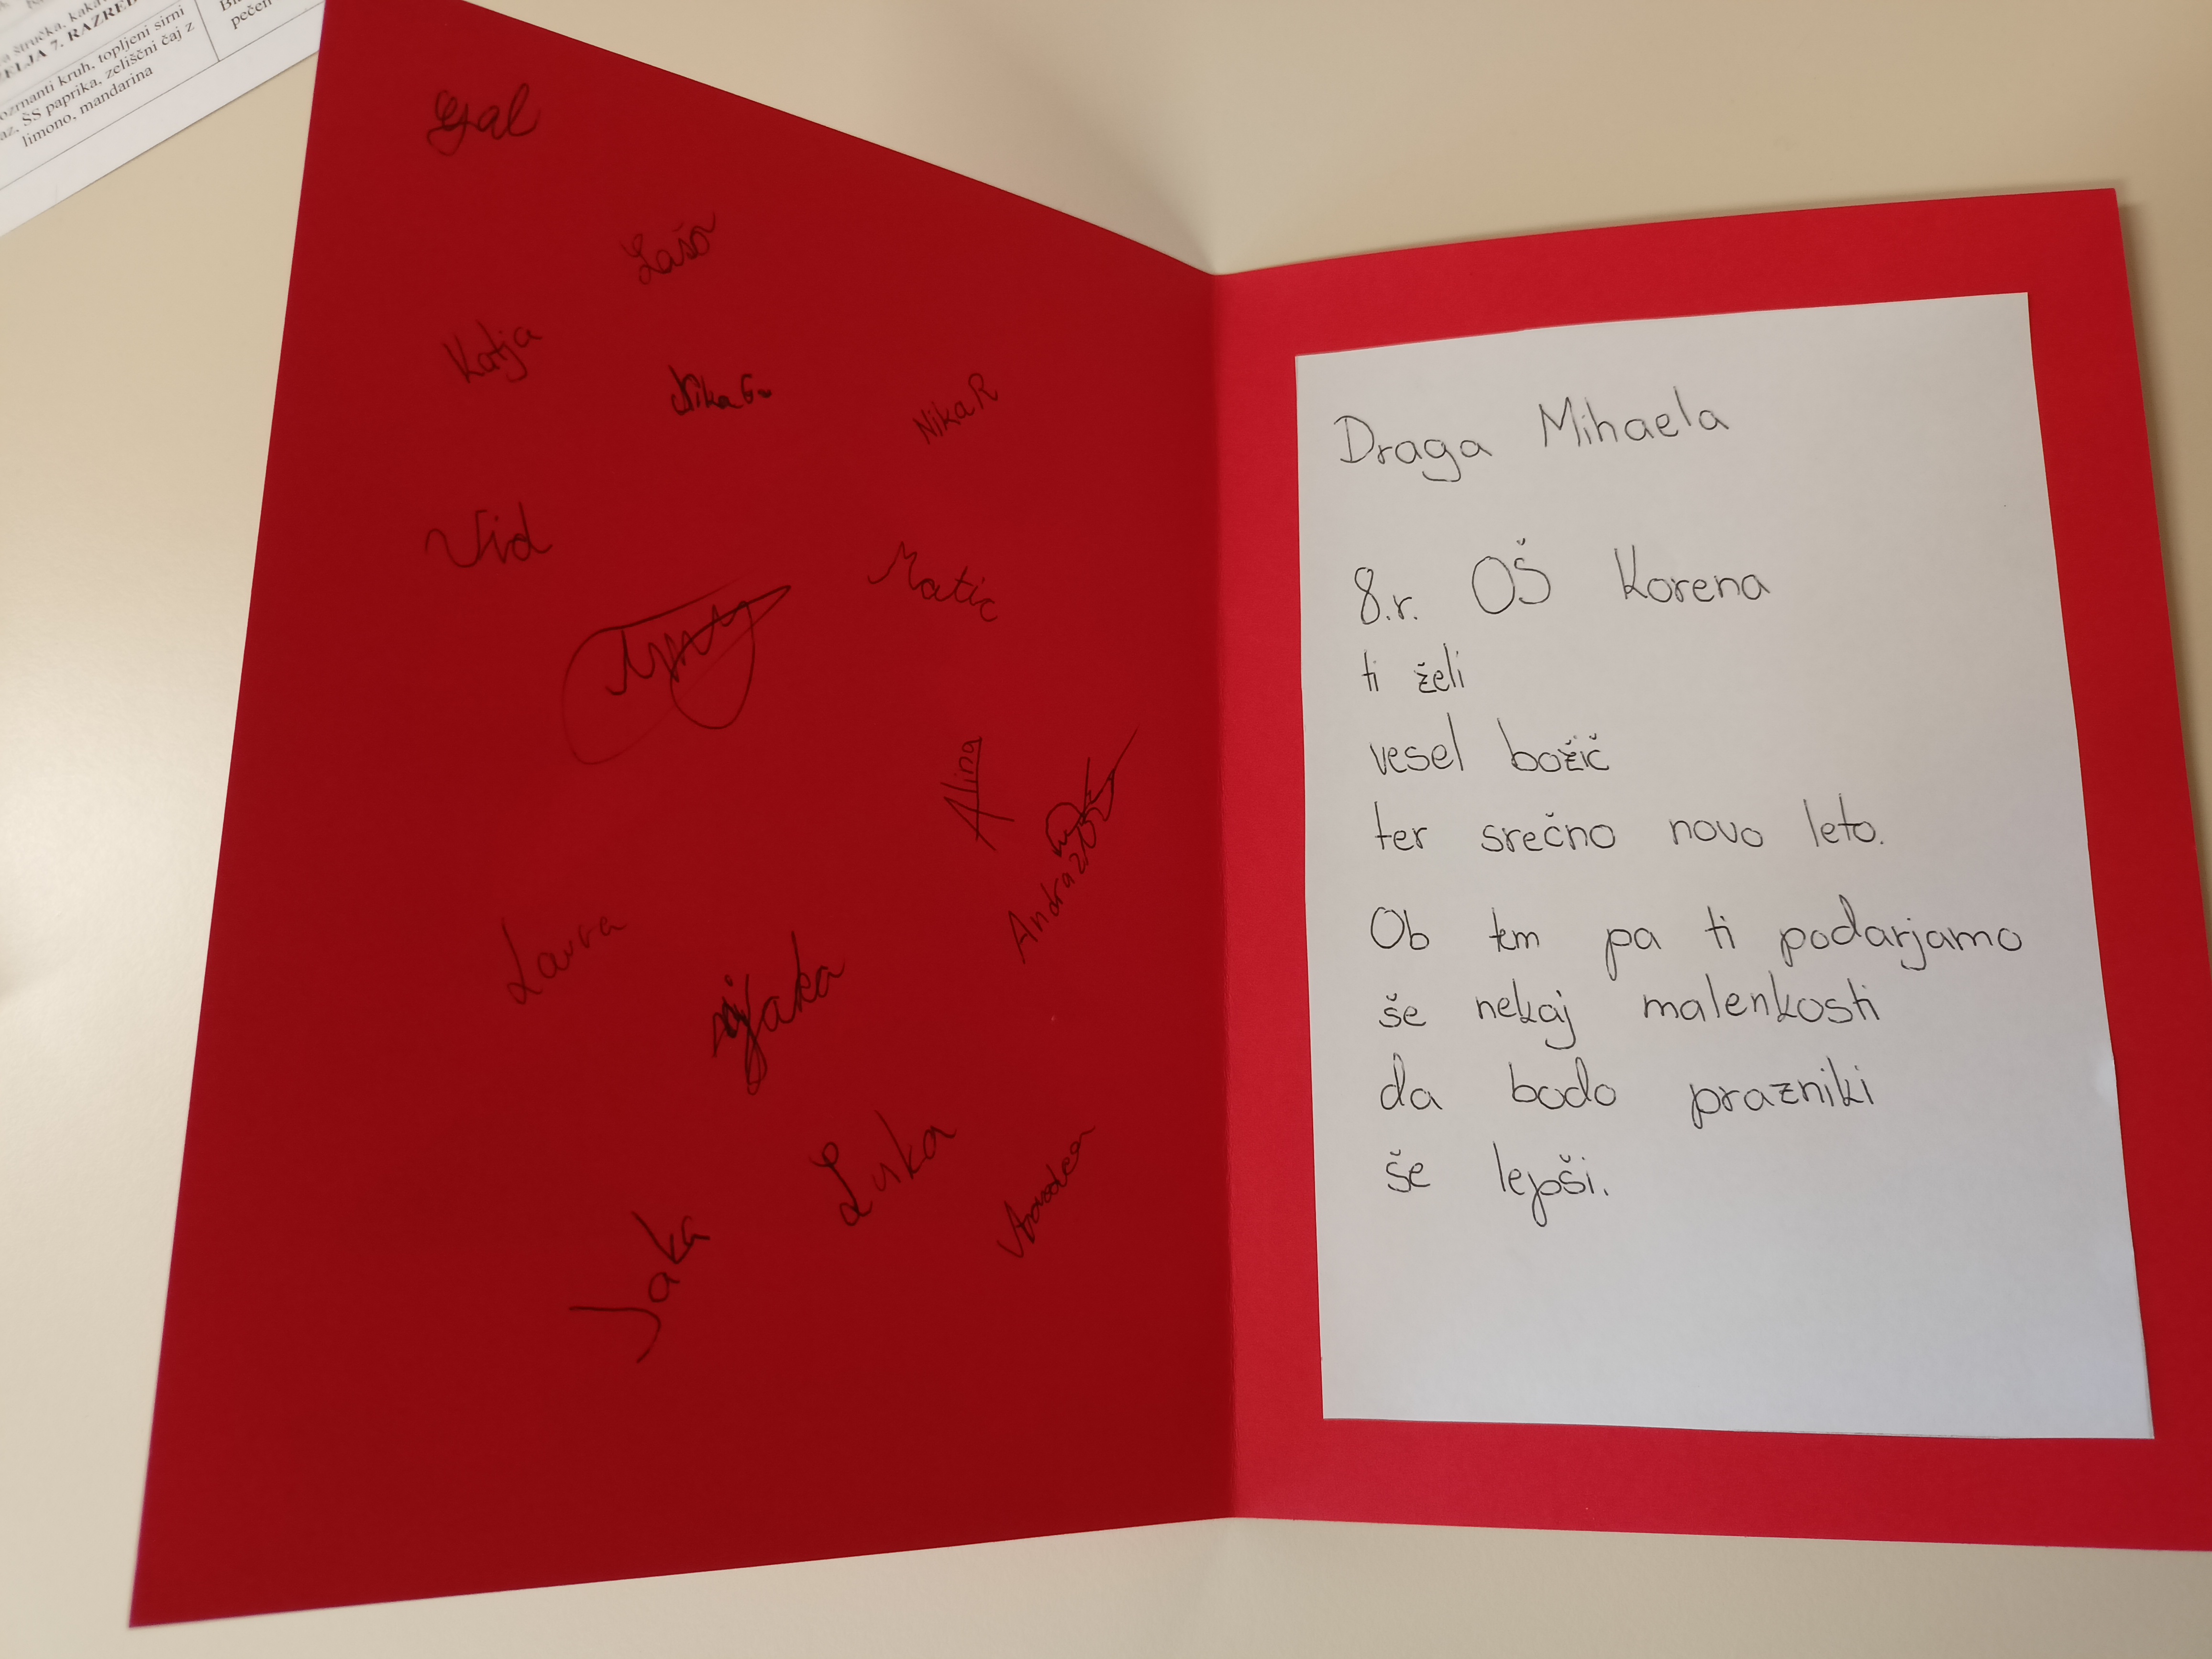 štručka, kaka
ELJA 7. RAZRED
ozrnanti kruh, topljeni sirni
az, ŠS paprika, zeliščni čaj z
limono, mandarina
pečen
Gal
Laša
Katja
Nika G.
Nika R
Vid
Matic
Alina
Andraž
Laura
Jaka
Luka
Jaka
Draga Mihaela
8.r. OŠ Korena
ti želi
vesel božič
ter srečno novo leto.
Ob tem pa ti podarjamo
še nekaj malenkosti
da bodo prazniki
še lepši.